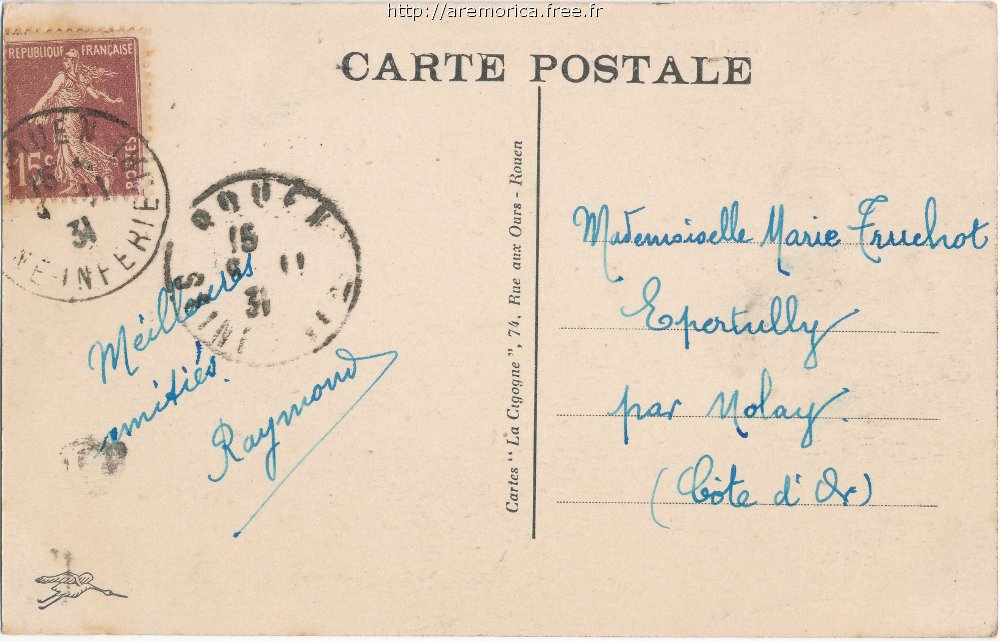 http://aremorica.free.fr
CARTE POSTALE
REPUBLIQUE FRANÇAISE
15c
POSTES
ROUEN
15
11
31
INFERIE
ROUEN
15
11
31
SEINE
Meilleures
amitiés.
Raymond
Cartes "La Cigogne", 74, Rue aux Ours - Rouen
Mademoiselle Marie Fruchot
Epertully
par Nolay.
(Côte d'Or)